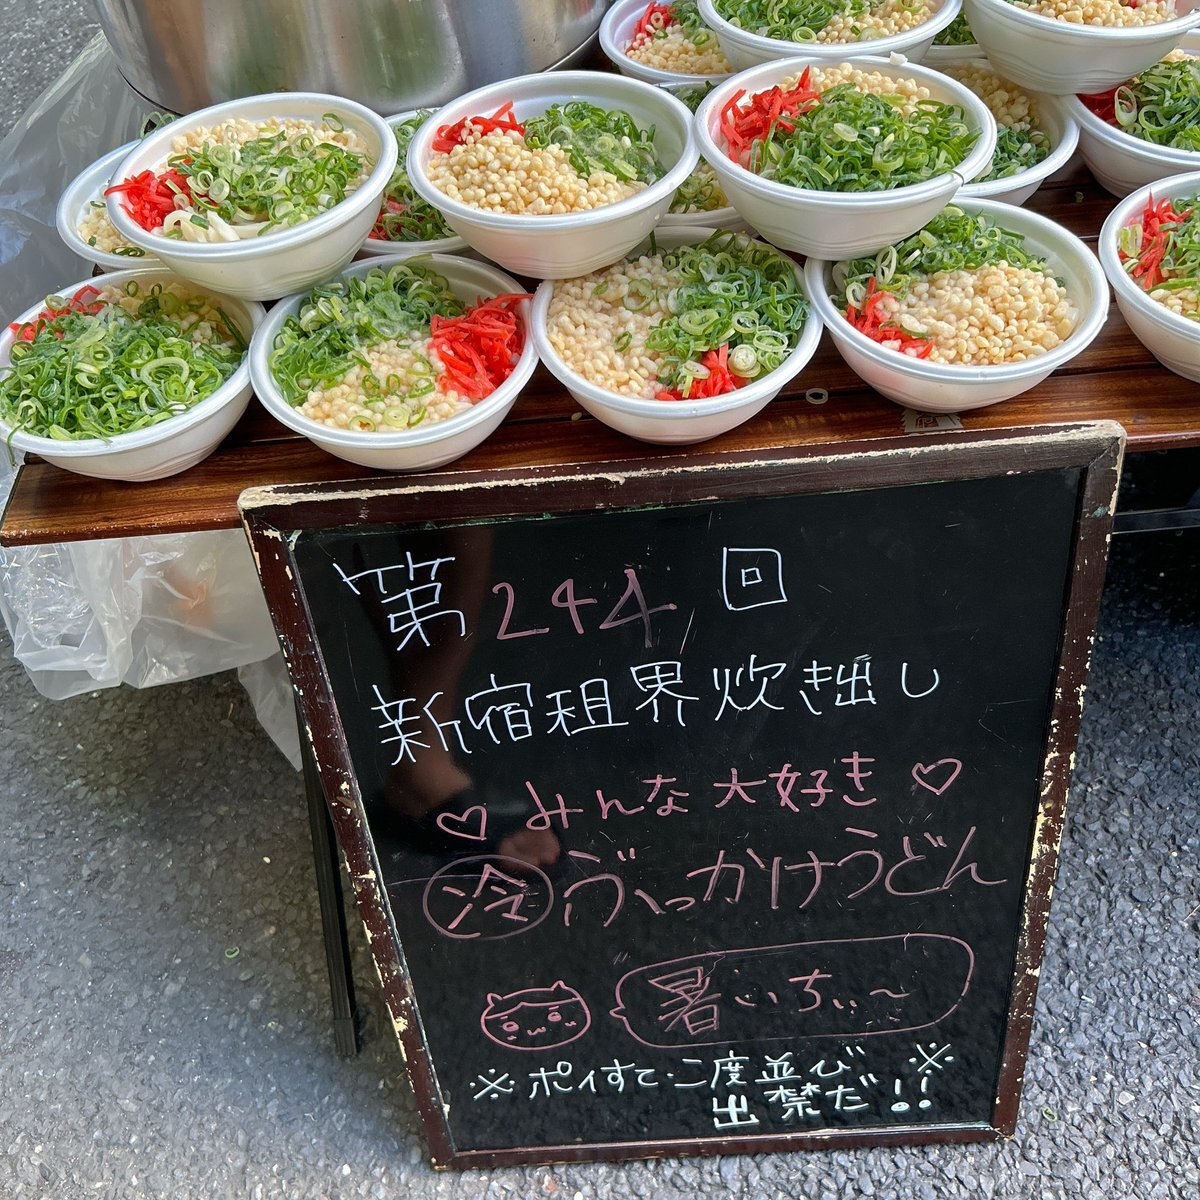 第244回
新宿租界炊き出し
♡みんな大好き♡
冷ぶっかけうどん
暑いちぃ〜
※ポイすて・二度並び※
出禁だ!!